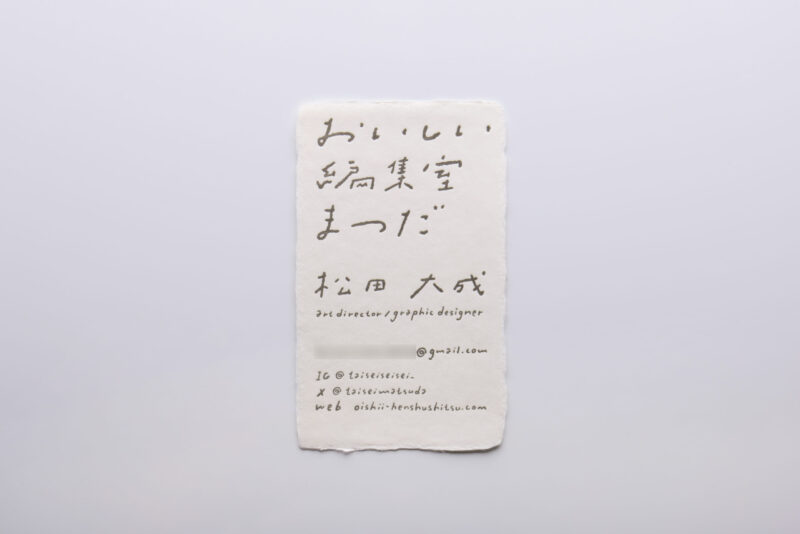 おいしい
編集室
まつだ
松田 大成
art director / graphic designer
@gmail.com
IG @ taiseiseisei_
X @ taiseimatsuda
web oishii-henshushitsu.com